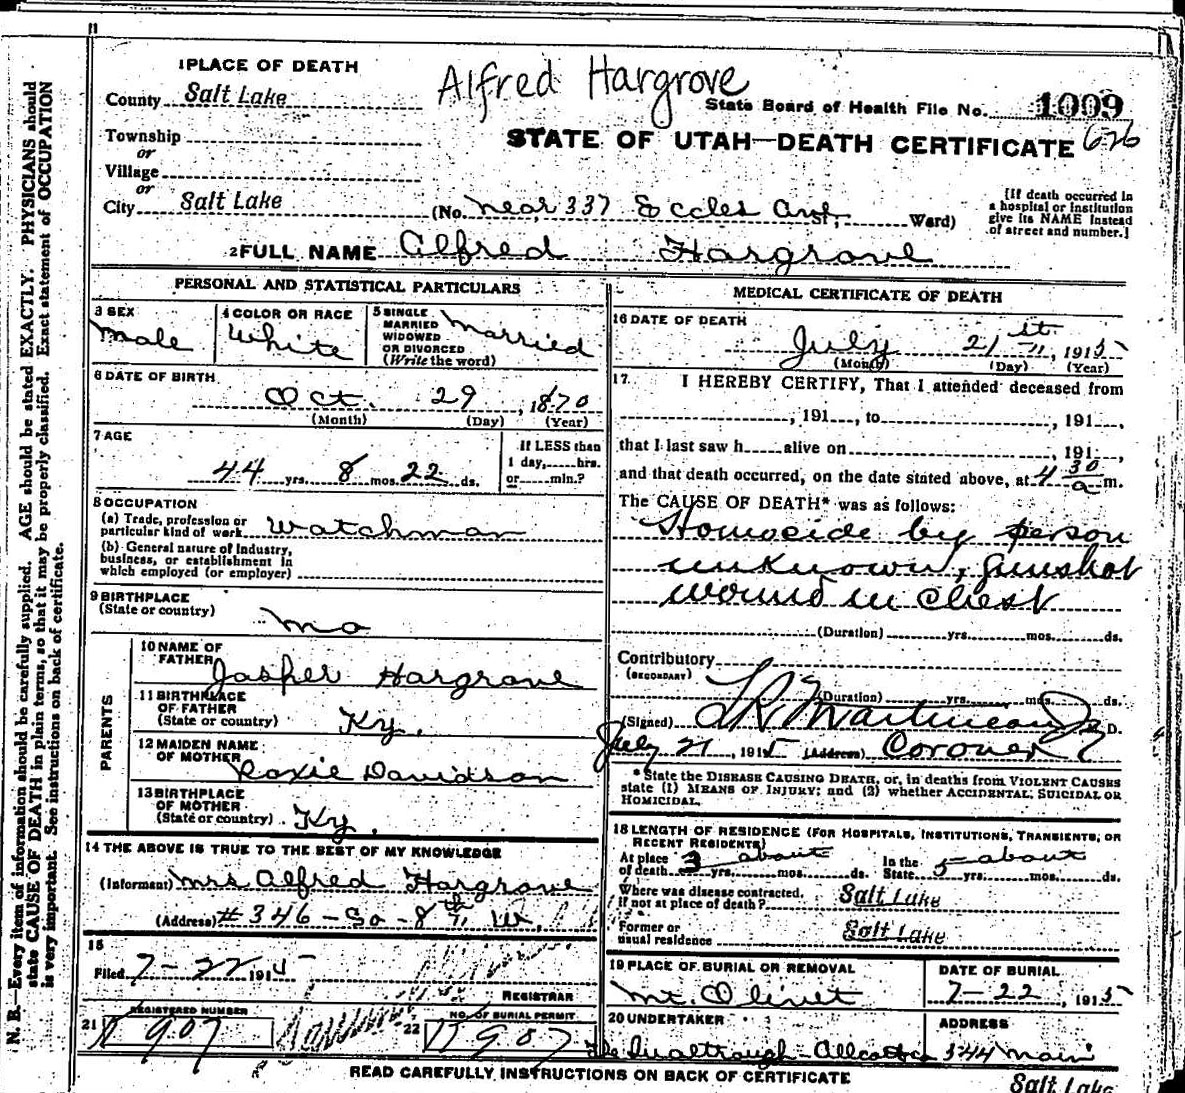 Alfred Hargrove
1 PLACE OF DEATH
County Salt Lake
State Board of Health File No. 1009
Township
or
STATE OF UTAH—DEATH CERTIFICATE 626
Village
or
City Salt Lake
(No. near 337 Eccles Ave St., Ward)
[If death occurred in
a hospital or institution
give its NAME instead
of street and number.]
2 FULL NAME Alfred Hargrove
PERSONAL AND STATISTICAL PARTICULARS
3 SEX
Male
4 COLOR OR RACE
White
5 SINGLE
MARRIED
WIDOWED
OR DIVORCED
(Write the word)
Married
6 DATE OF BIRTH
Oct. 29, 1870
(Month) (Day) (Year)
7 AGE
44 yrs. 8 mos. 22 ds.
If LESS than
1 day, hrs.
or min.?
8 OCCUPATION
(a) Trade, profession or
particular kind of work Watchman
(b) General nature of industry,
business, or establishment in
which employed (or employer)
9 BIRTHPLACE
(State or country)
Mo
PARENTS
10 NAME OF
FATHER Jasper Hargrove
11 BIRTHPLACE
OF FATHER
(State or country) Ky.
12 MAIDEN NAME
OF MOTHER Roxie Davidson
13 BIRTHPLACE
OF MOTHER
(State or country) Ky.
14 THE ABOVE IS TRUE TO THE BEST OF MY KNOWLEDGE
(Informant) Mrs Alfred Hargrove
(Address) #346-So-8th W.
15
Filed 7-22 1915
REGISTRAR
21 REGISTERED NUMBER
907
22 NO. OF BURIAL PERMIT
907
MEDICAL CERTIFICATE OF DEATH
16 DATE OF DEATH
July 21st, 1915
(Month) (Day) (Year)
17. I HEREBY CERTIFY, That I attended deceased from
, 191 , to , 191 ,
that I last saw h alive on , 191 ,
and that death occurred, on the date stated above, at 4 30 a m.
The CAUSE OF DEATH* was as follows:
Homocide by person
unknown, gunshot
wound in chest
(Duration) yrs. mos. ds.
Contributory
(SECONDARY)
(Duration) yrs. mos. ds.
(Signed) M. D.
July 21, 1915 (Address) Coroner
*State the DISEASE CAUSING DEATH, or, in deaths from VIOLENT CAUSES
state (1) MEANS OF INJURY; and (2) whether ACCIDENTAL, SUICIDAL OR
HOMICIDAL.
18 LENGTH OF RESIDENCE (FOR HOSPITALS, INSTITUTIONS, TRANSIENTS, OR
RECENT RESIDENTS)
At place
of death 3 about yrs. mos. ds.
In the
State 5 about yrs. mos. ds.
Where was disease contracted,
if not at place of death? Salt Lake
Former or
usual residence Salt Lake
19 PLACE OF BURIAL OR REMOVAL
Mt. Olivet
DATE OF BURIAL
7-22, 1915
20 UNDERTAKER
ADDRESS
344 Main
Salt Lake
READ CAREFULLY INSTRUCTIONS ON BACK OF CERTIFICATE
N. B.—Every item of information should be carefully supplied. AGE should be stated EXACTLY. PHYSICIANS should
state CAUSE OF DEATH in plain terms, so that it may be properly classified. Exact statement of OCCUPATION
is very important. See instructions on back of certificate.